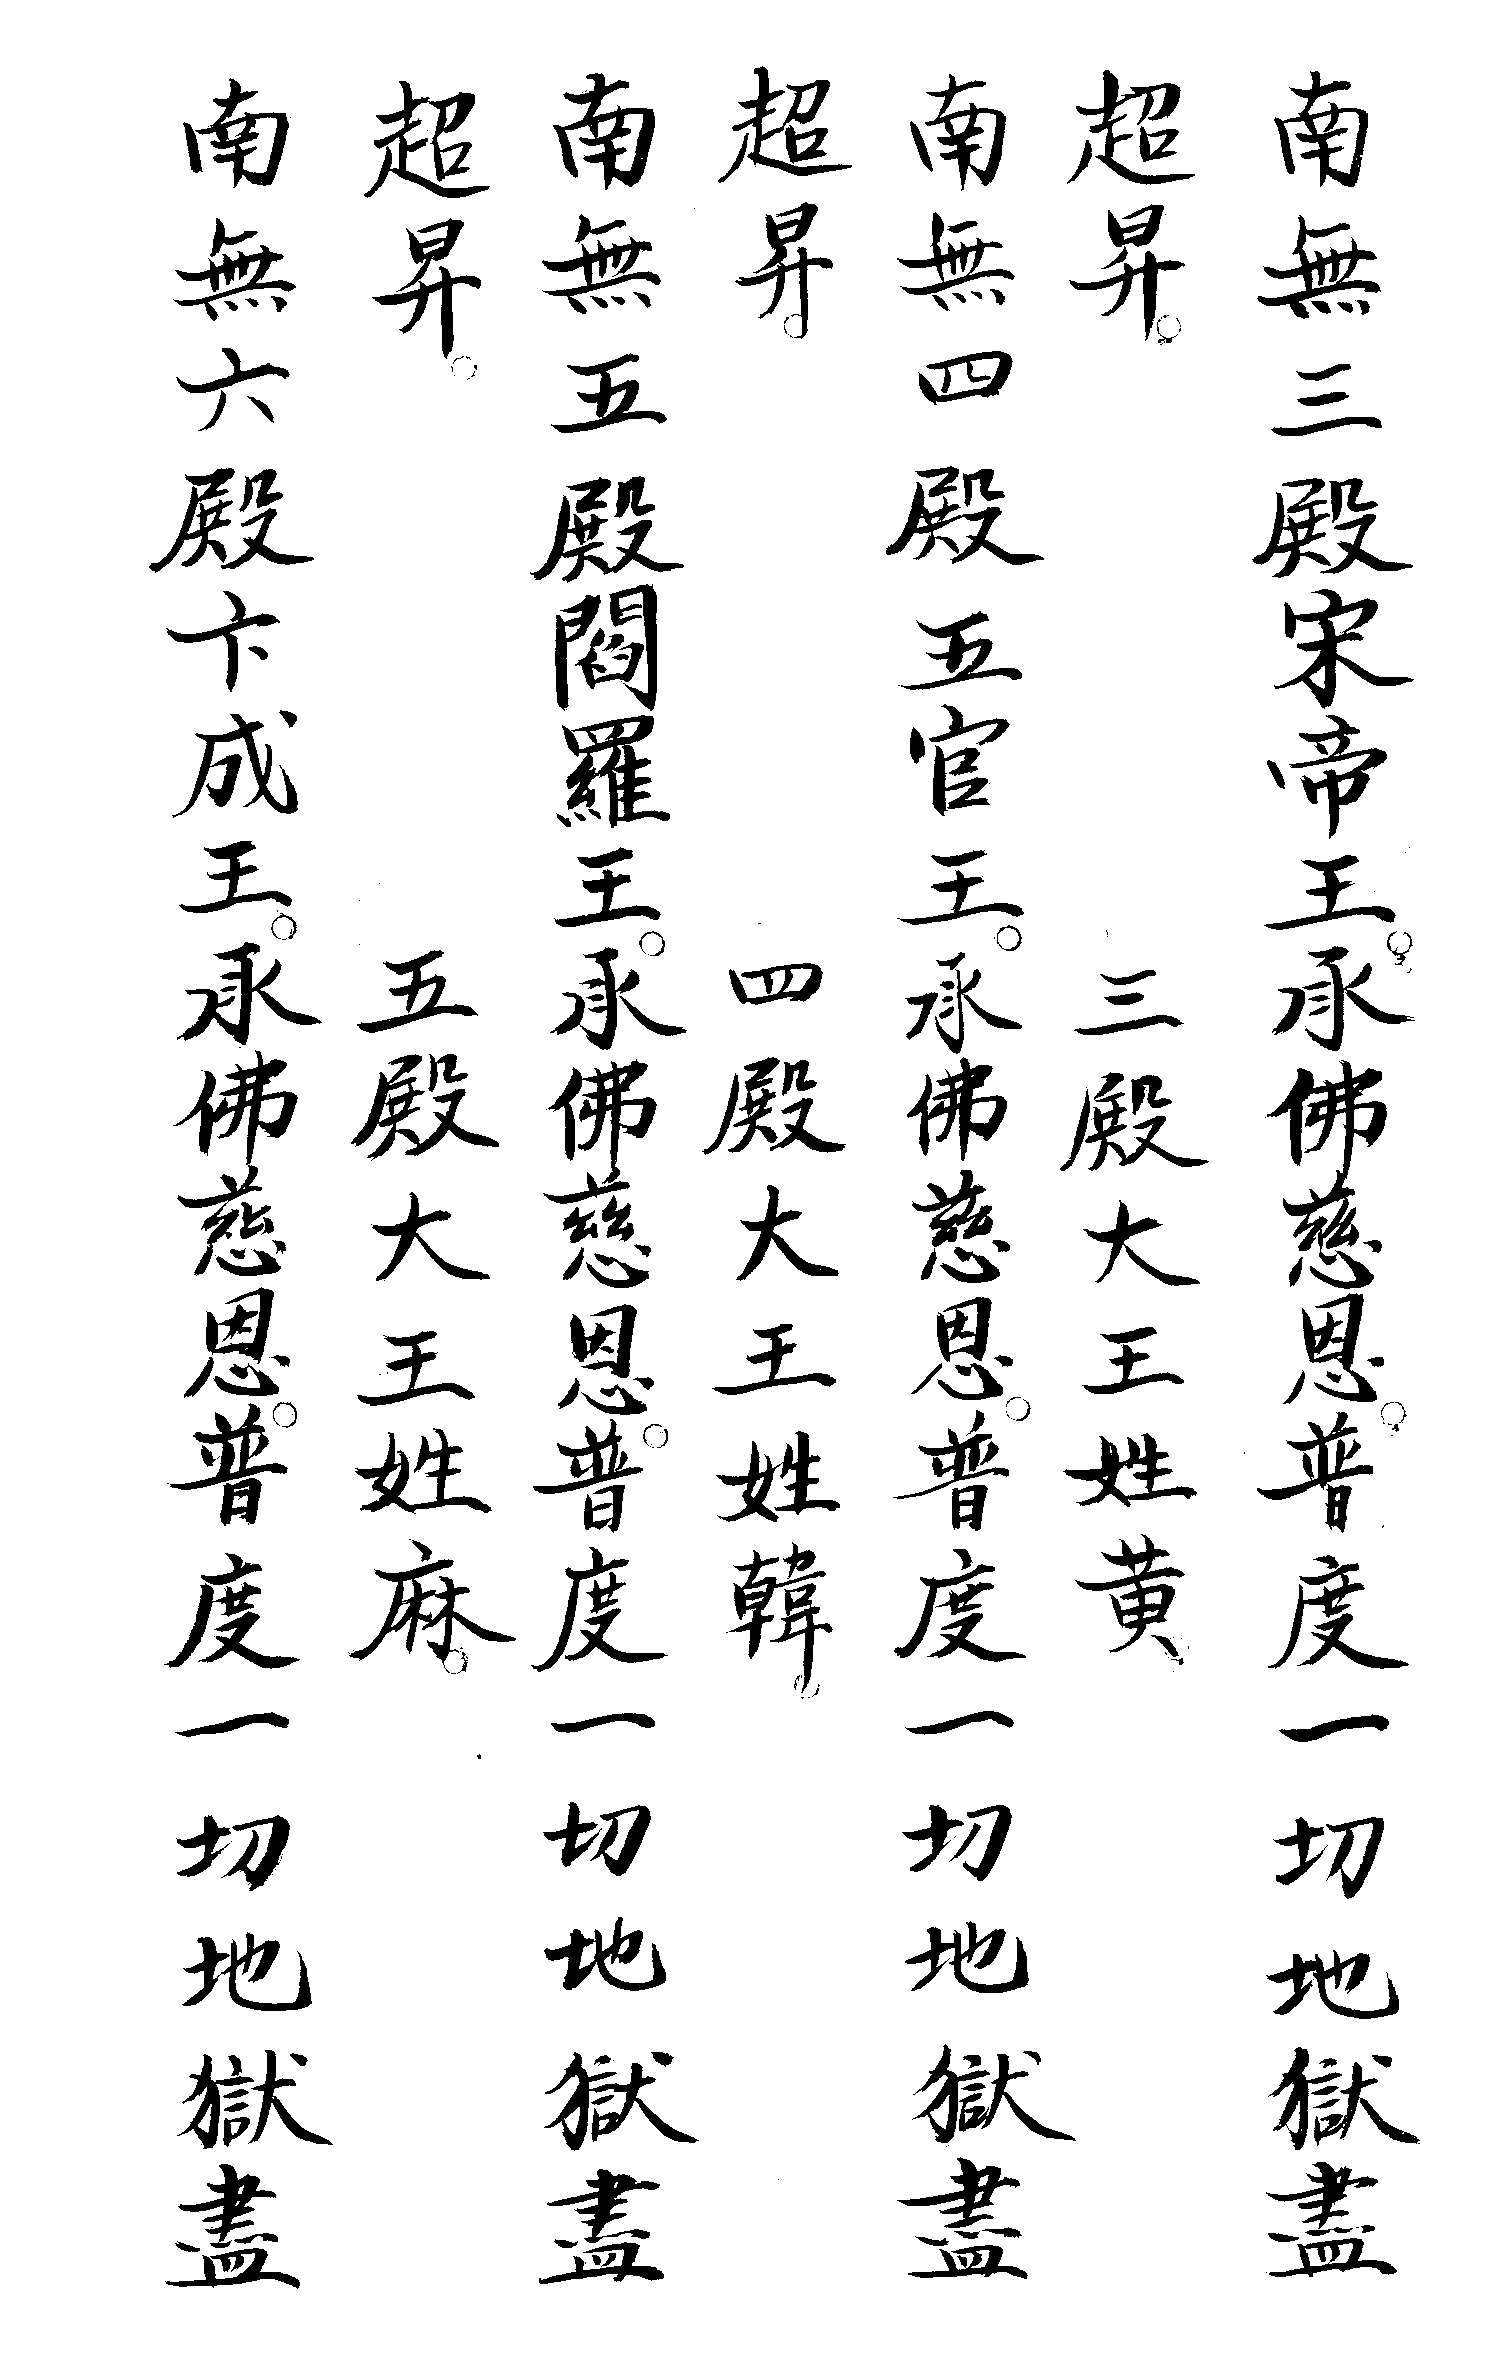 南無三殿宋帝王。承佛慈恩。普度一切地獄盡
超昇。 三殿大王姓黄。
南無四殿五官王。承佛慈恩。普度一切地獄盡
超昇。 四殿大王姓韓。
南無五殿閻羅王。承佛慈恩。普度一切地獄盡
超昇。 五殿大王姓麻。
南無六殿卞成王。承佛慈恩。普度一切地獄盡